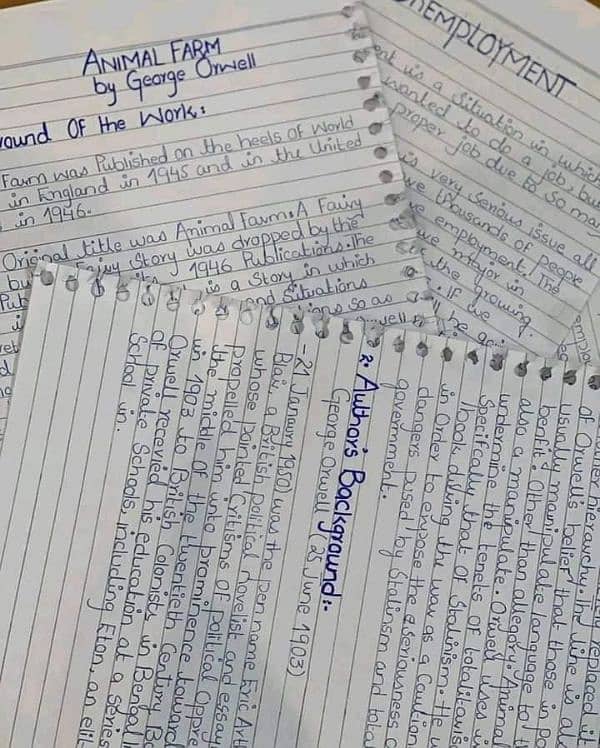 ANIMAL FARM
by George Orwell
ound Of the Work:
Farm was Published on the heels of World
in England in 1945 and in the United
in 1946.
Original title was Animal Farm: A Fairy
Story was dropped by the
1946 Publications. The
is a Story in which
and Situations
so as
EMPLOYMENT
is a Situation in which
wanted to do a job, but
proper job due to so many
very serious issue all
thousands of people
employment. The
major in
the growing
. If we
2. Author's Background:-
George Orwell (25 June 1903)
-21 Junuary 1950) was the pen name Eric Art
Blair, a British political novelist and essay
whose pointed Critisms of political Oppre
propelled him into prominence toward
the middle of the twentieth Century. Bo
in 1903 to British Colonists in Bengal
Orwell recevied his education at a series
of private Schools, including Eton, an elit-
School in.
replaced
hierarchy. The line is al
of Orwell's belief that those in po
Usually manipulate language to t
benefit. Other than allegory, Animal
also a manipulate. Orwell uses
undermine the tenets of totalitaris
Specifcally that of Stalinism. He
book during the war as a Caution
in Order to expose the seriousness o
dangers posed by Stalinsm and tota
government.